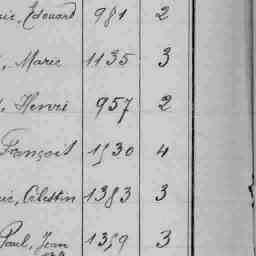 Edouard 981 2
, Marie 1135 3
, Henri 957 2
François 1530 4
Célestin 1383 3
Paul, Jean 3